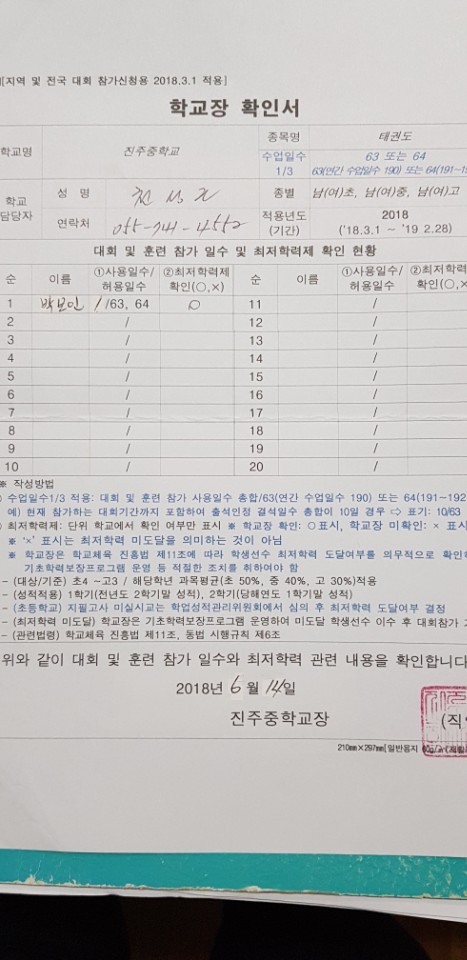 [지역 및 전국 대회 참가신청용 2018.3.1 적용]
학교장 확인서
학교명 진주중학교 종목명 태권도
수업일수 1/3 63 또는 64
63(연간 수업일수 190) 또는 64(191~19
학교 담당자 성 명 종별 남(여)초, 남(여)중, 남(여)고
연락처 055-741-4552 적용년도 (기간) 2018 ('18.3.1 ~ '19 2.28)
대회 및 훈련 참가 일수 및 최저학력제 확인 현황
순 이름 ①사용일수/허용일수 ②최저학력제 확인(○,×) 순 이름 ①사용일수/허용일수 ②최저학력 확인(○,×
1 박모인 1/63, 64 ○ 11 /
2 / 12 /
3 / 13 /
4 / 14 /
5 / 15 /
6 / 16 /
7 / 17 /
8 / 18 /
9 / 19 /
10 / 20 /
※ 작성방법
수업일수1/3 적용: 대회 및 훈련 참가 사용일수 총합/63(연간 수업일수 190) 또는 64(191~192
예) 현재 참가하는 대회기간까지 포함하여 출석인정 결석일수 총합이 10일 경우 ⇨ 표기: 10/63
최저학력제: 단위 학교에서 확인 여부만 표시 ※ 학교장 확인: ○표시, 학교장 미확인: × 표시
※ '×' 표시는 최저학력 미도달을 의미하는 것이 아님
※ 학교장은 학교체육 진흥법 제11조에 따라 학생선수 최저학력 도달여부를 의무적으로 확인하
기초학력보장프로그램 운영 등 적절한 조치를 취하여야 함
- (대상/기준) 초4 ~고3 / 해당학년 과목평균(초 50%, 중 40%, 고 30%)적용
- (성적적용) 1학기(전년도 2학기말 성적), 2학기(당해연도 1학기말 성적)
- (초등학교) 지필고사 미실시교는 학업성적관리위원회에서 심의 후 최저학력 도달여부 결정
- (최저학력 미도달) 학교장은 기초학력보장프로그램 운영하여 미도달 학생선수 이수 후 대회참가
- (관련법령) 학교체육 진흥법 제11조, 동법 시행규칙 제6조
위와 같이 대회 및 훈련 참가 일수와 최저학력 관련 내용을 확인합니다
2018년 6 월 14일
진주중학교장 (직
210㎜×297㎜[일반용지 60g/㎡(재활